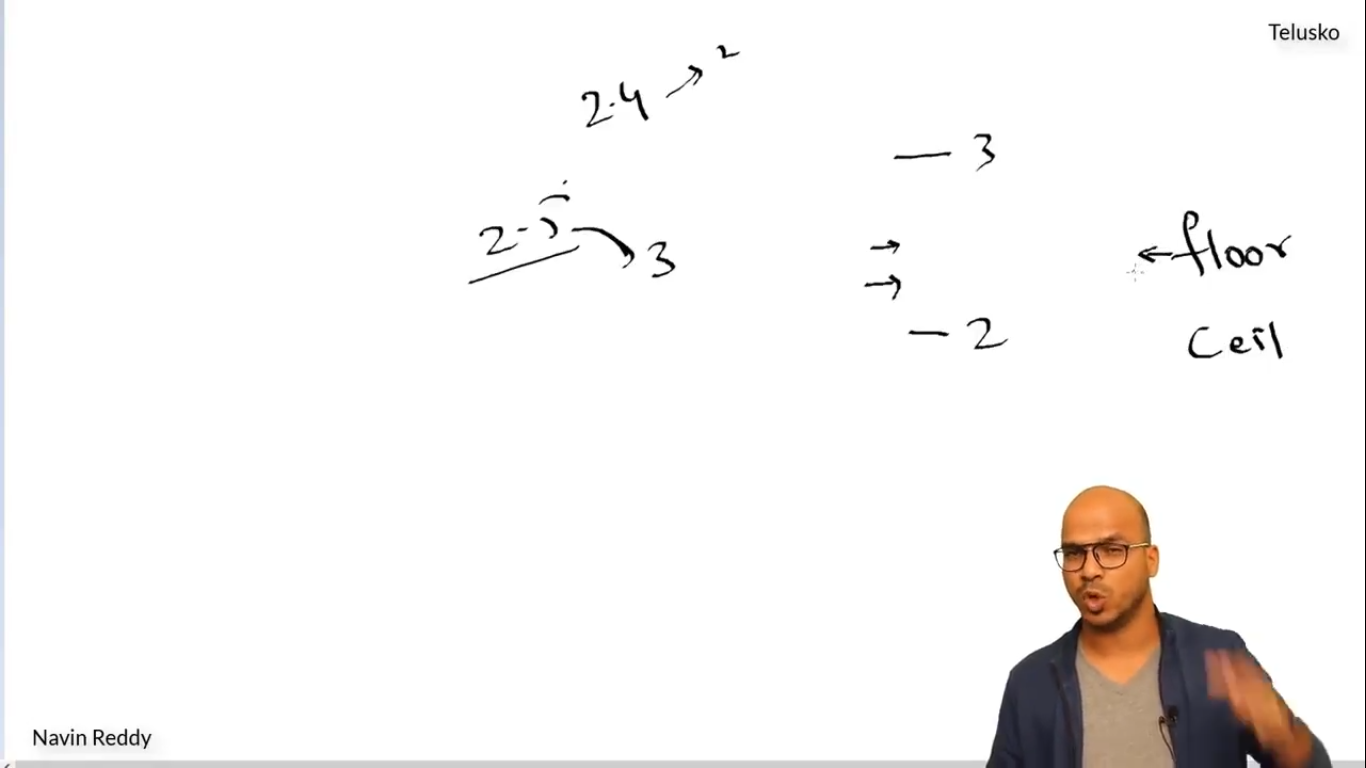 Telusko
2.4 → 2
— 3
2.5 3
→
← floor
→
– 2
Ceil
Navin Reddy